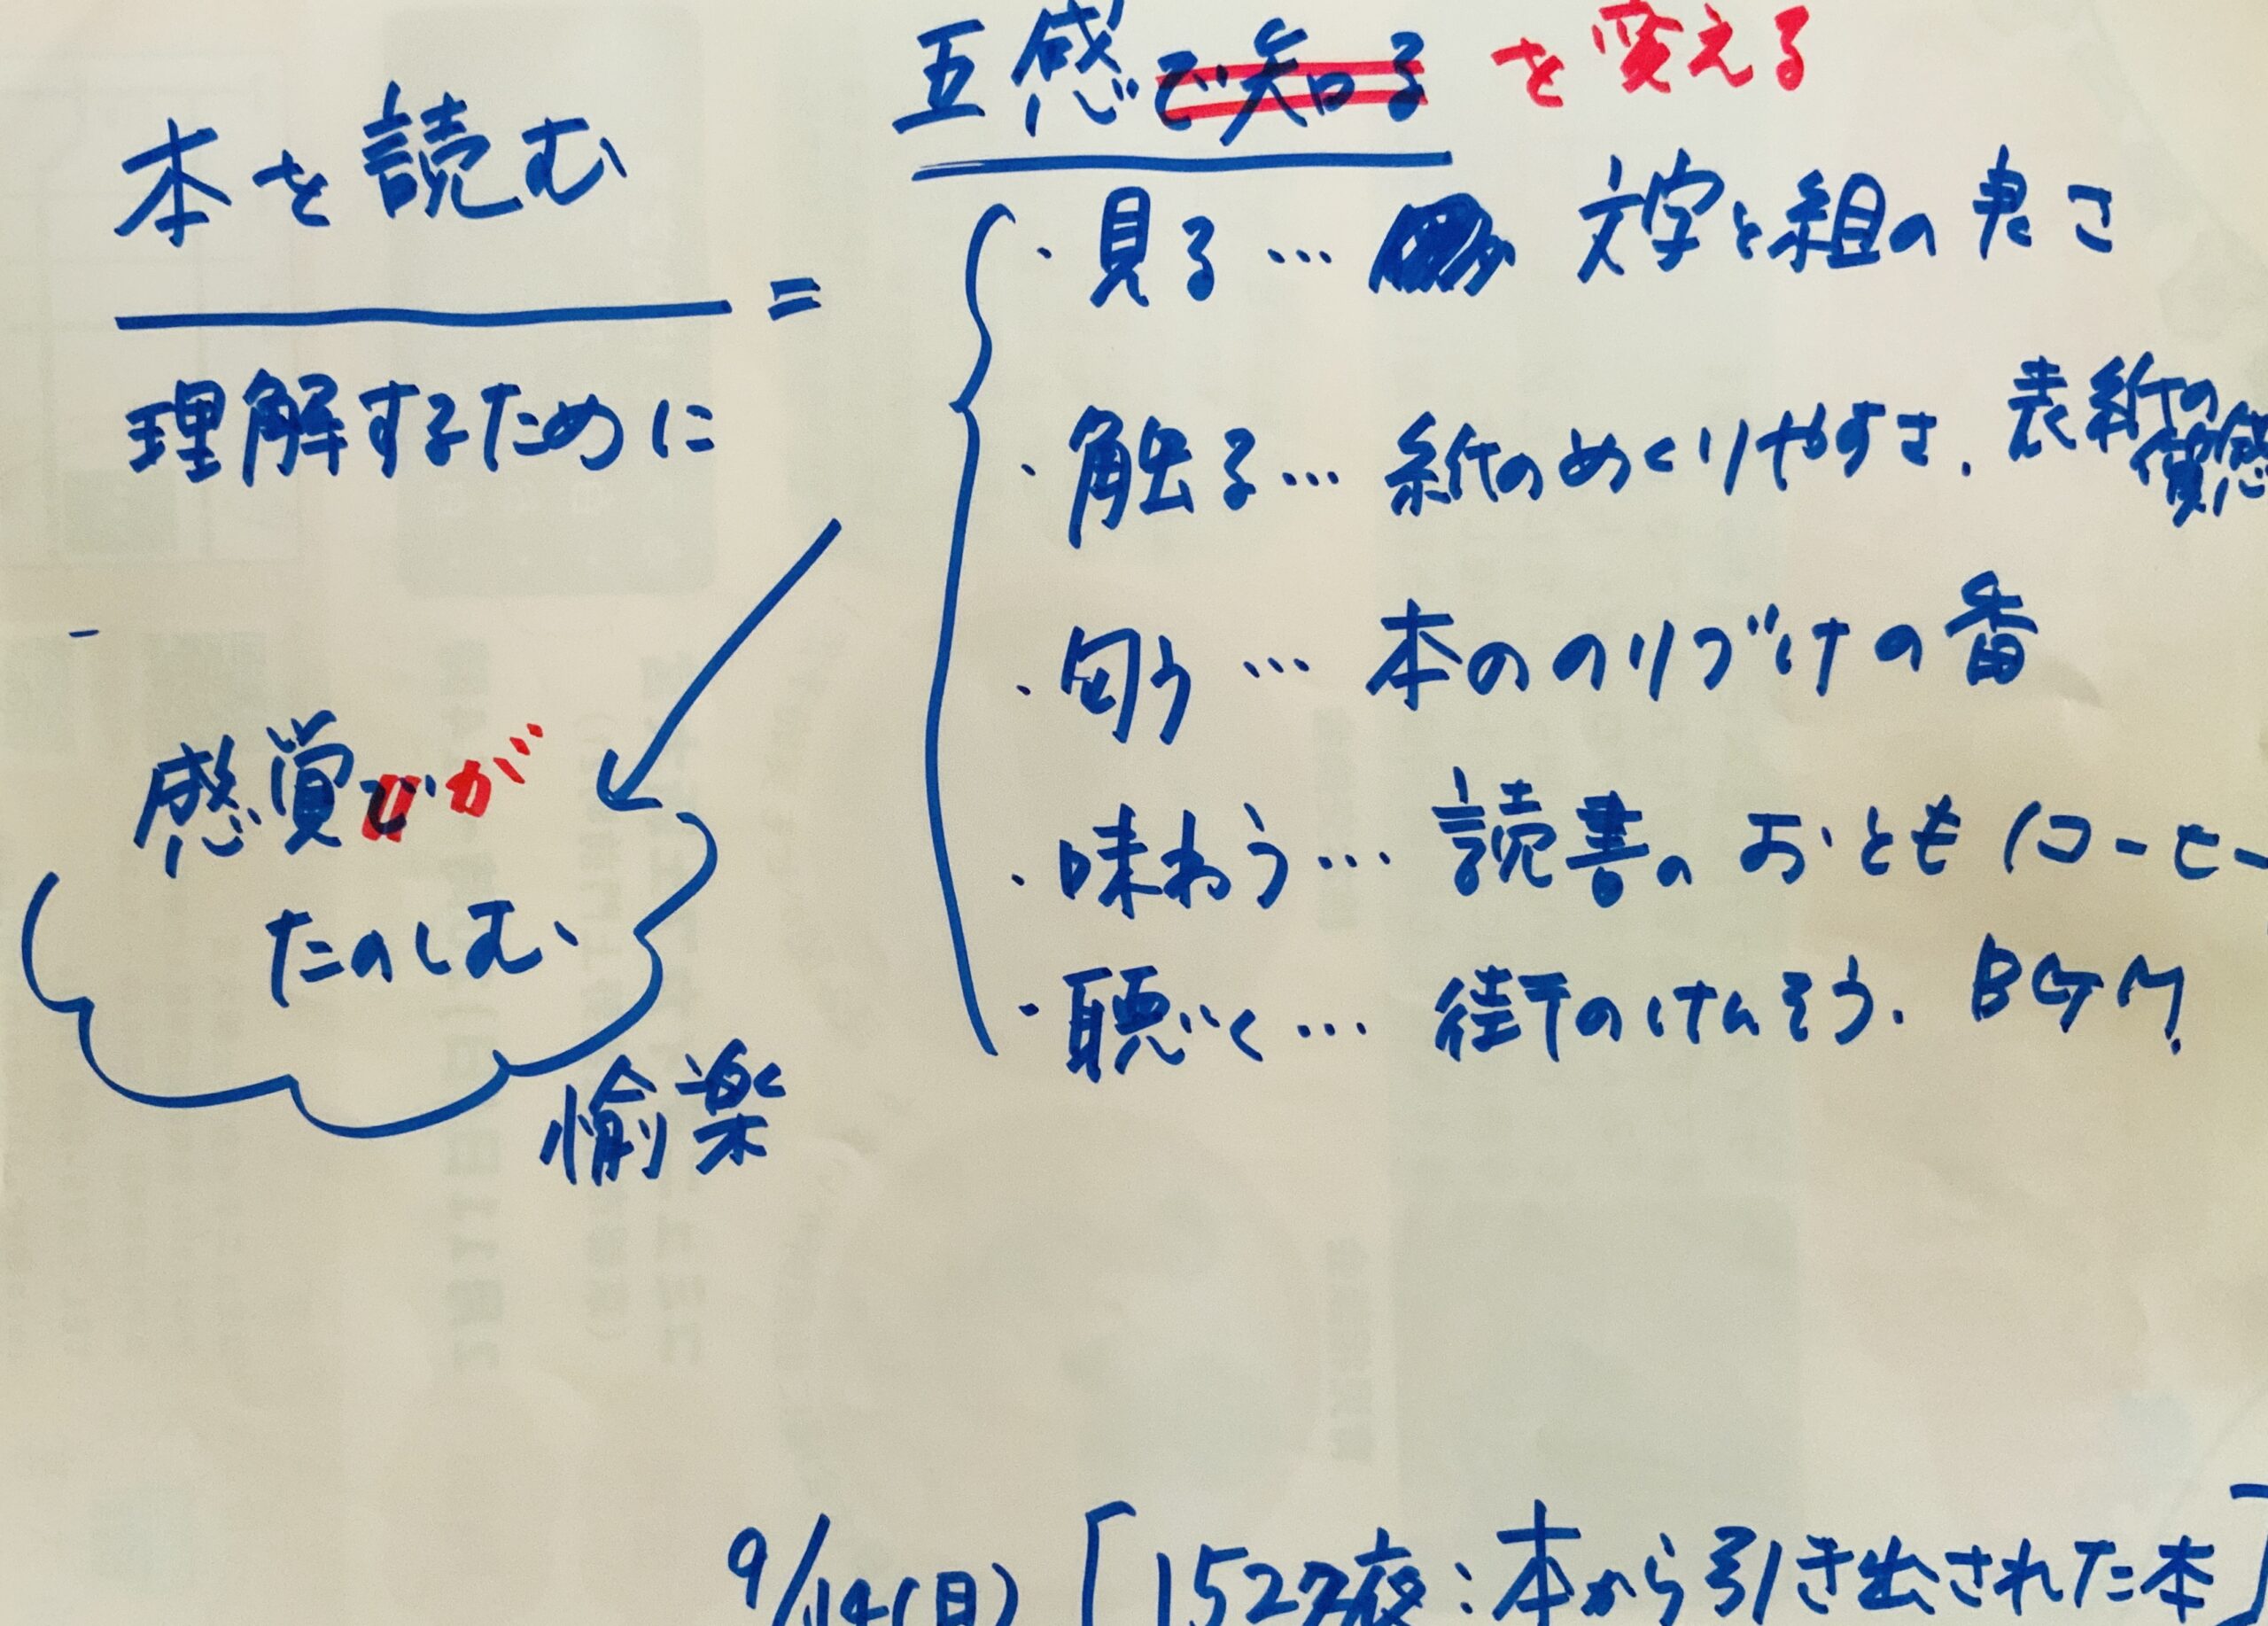 本を読む
理解するために
=
五感で知る を変える
・見る… 文字と組の良さ
・触る… 紙のめくりやすさ、表紙の質感
・匂う… 本ののりづけの番
・味わう… 読書のおとも(コーヒー
・聴く… 街のけんそう、BGM
感覚でが
たのしむ
愉楽
9/14(日) [1522夜:本から引き出された本]